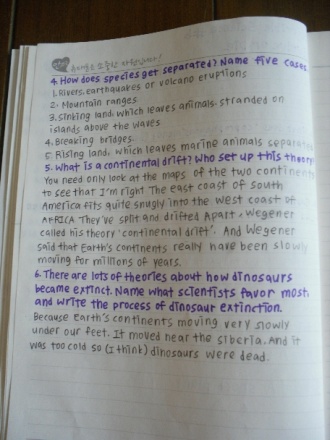 4. How does species get separated? Name five cases
1. Rivers, earthquakes or volcano eruptions
2. Mountain ranges
3. Sinking land, which leaves animals stranded on
islands above the waves
4. Breaking bridges.
5. Rising land, which leaves marine animals separated
5. What is a continental drift? Who set up this theory
You need only look at the maps of the two continents
to see that I'm right The east coast of South
America fits quite snugly into the west coast of
AFRICA They've split and drifted Apart, Wegener
called his theory 'continental drift'. And Wegener
said that Earth's continents really have been slowly
moving for millions of years.
6. There are lots of theories about how dinosaurs
became extinct. Name what scientists favor most,
and write the process of dinosaur extinction.
Because Earth's continents moving very slowly
under our feet. It moved near the siberia. And it
was too cold so (I think) dinosaurs were dead.